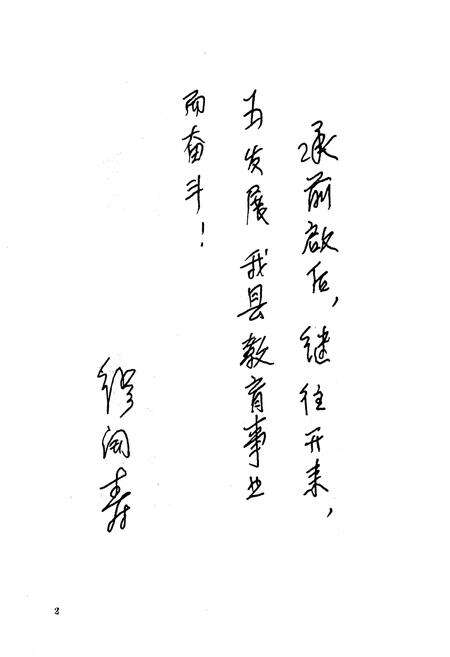 承前啟后，继往开来，
为发展我县教育事业
而奋斗！
缪 寿
2